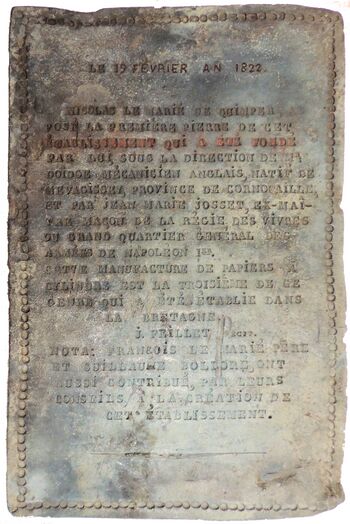 LE 19 FÉVRIER AN 1822.
NICOLAS LE MARIÉ DE QUIMPER A
POSÉ LA PREMIÈRE PIERRE DE CET
ÉTABLISSEMENT QUI A ÉTÉ FONDÉ
PAR LUI, SOUS LA DIRECTION DE M.
MÉCANICIEN ANGLAIS, NATIF DE
MEVAGISSEY, PROVINCE DE CORNOUAILLE,
ET PAR JEAN MARIE JOSSET, EX-MAÎ-
TRE MAÇON DE LA RÉGIE DES VIVRES
DU GRAND QUARTIER GÉNÉRAL DES
ARMÉES DE NAPOLÉON 1ER.
CETTE MANUFACTURE DE PAPIERS À
CYLINDRE EST LA TROISIÈME DE CE
GENRE QUI A ÉTÉ ÉTABLIE DANS
LA BRETAGNE.
J. FEILLET
NOTA: FRANÇOIS LE MARIÉ PÈRE
ET GUILLAUME BOLLORÉ, ONT
AUSSI CONTRIBUÉ, PAR LEURS
CONSEILS, À LA CRÉATION DE
CET ÉTABLISSEMENT.